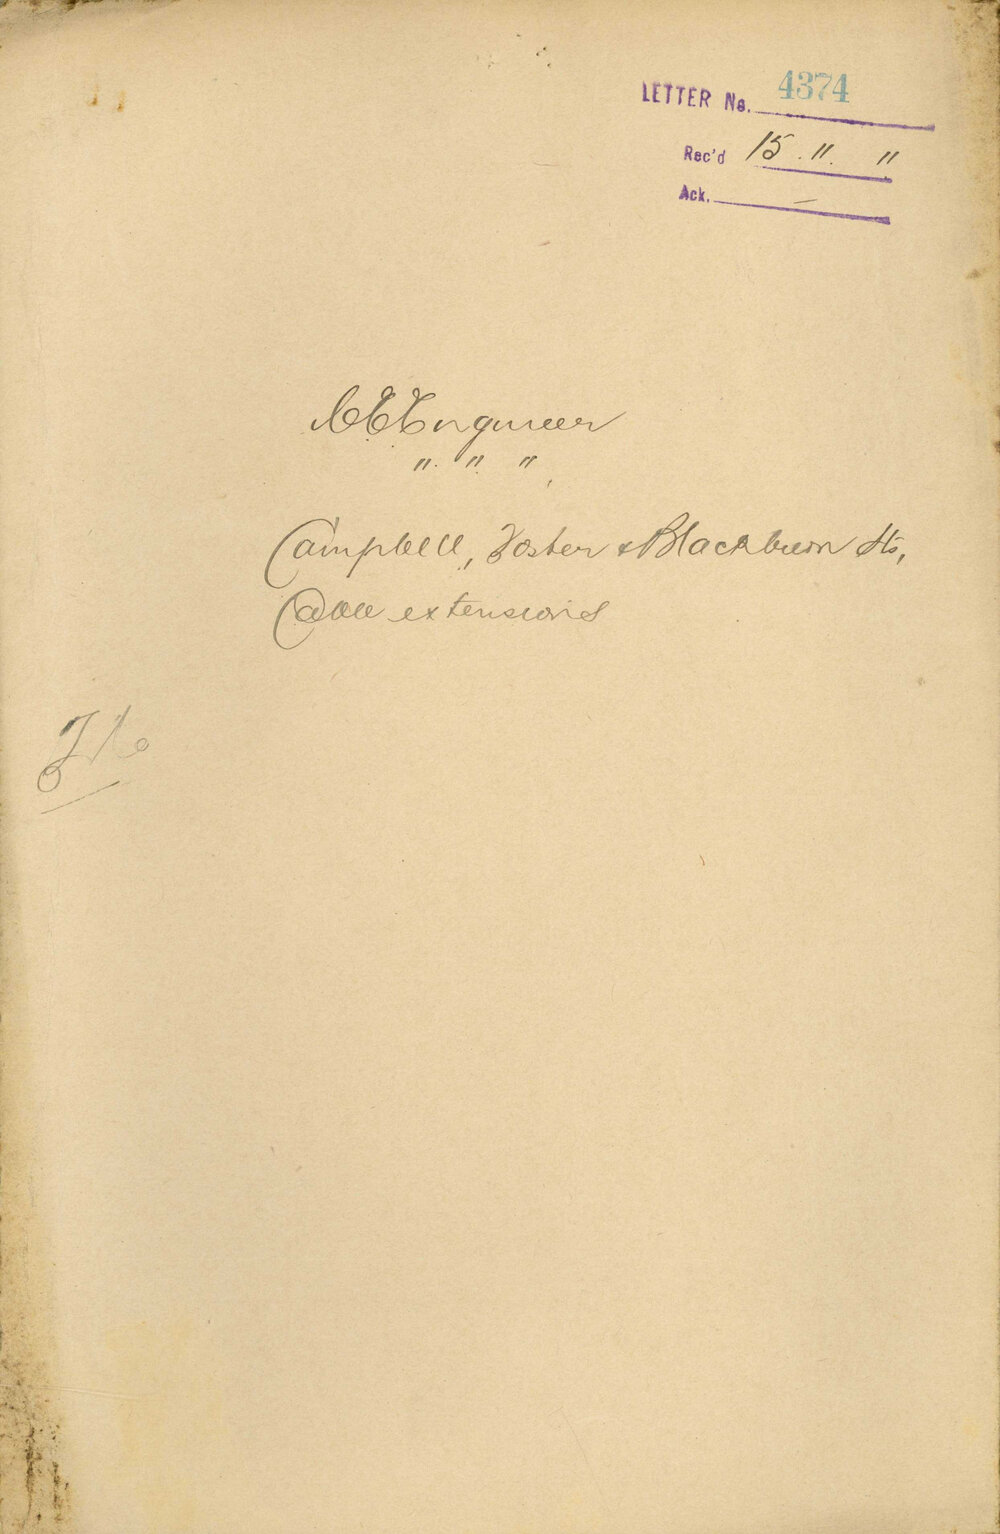 LETTER No. 4374
Rec'd 15. 11. 11
Ack. —
C E Engineer
" " "
Campbell, Foster & Blackburn Sts,
extensions